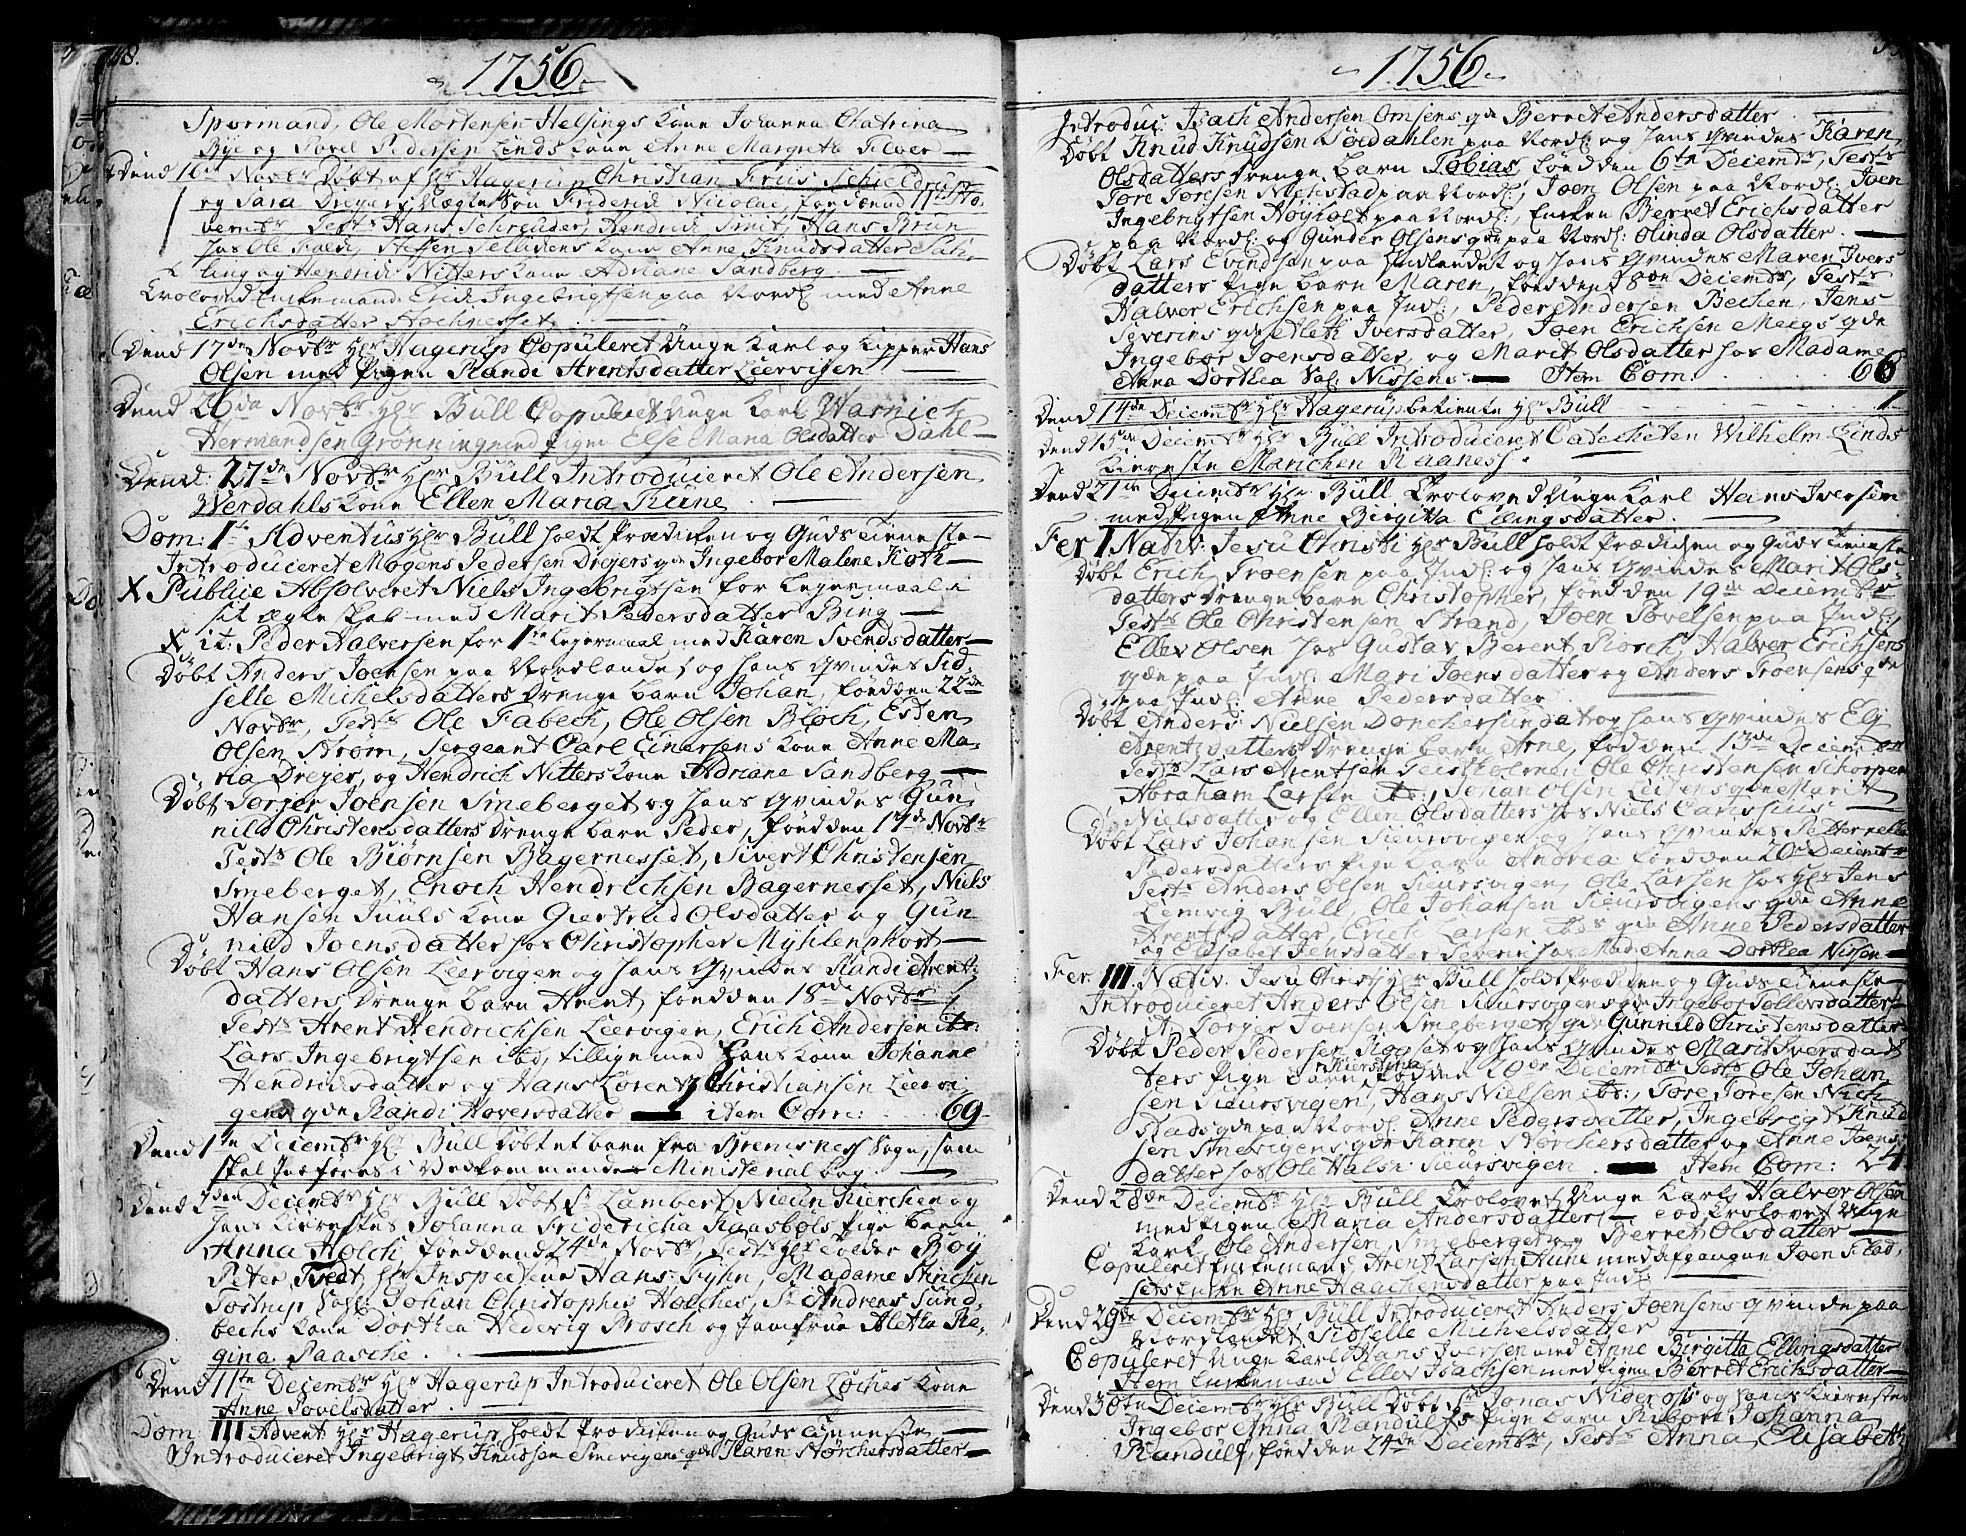 48.
1756
Spormand, Ole Mortensen Helsings kone Johanna Chatrina
Bye og Povel Pedersen Lends kone Anne Margreta Elver
Dend 16de Novbr Døbt af Hr Hagerup Christian Friis
og Sara Dreyers Ægte Søn Friderich Nicolai, fød dend 11te No
vembr Test: Hans Schreuder, Hendrich Smit, Hans Brun
hos Ole kone Anne Knudsdatter
ling og Hendrich Nitters kone Adriane Sandberg
Troloved Enkemand Erich Ingebrigtsen paa Nordl: med Anne
Erichsdatter
Dend 17de Novbr Hr Hagerup Copuleret Unge Karl og Kipper Hans
Olsen med Pigen Randi Arentsdatter Leervigen
Dend 26de Novbr Hr Bull Copuleret Unge Karl Warnich
Hermandsen Grønning med Pigen Else Maria Olsdatter Dahl
Dend: 27de Novbr Hr Bull Introduceret Ole Andersen
Werdahls kone Ellen Maria Rune
Dom: 1te Adventus Hr Bull holdt Prædiken og Guds tieneste
Introduceret Mogens Pedersen Dreyers qde Ingebor Malene Koth
X Publice Absolveret Niels Ingebrigtsen for Leyermaal i
sit ægteskab med Marit Pedersdatter Bing
X it: Peder Halversen for 1te Leyermaal med Karen Svendsdatter
Døbt Anders Joensen paa Nordlandet og hans qvindes Sid
selle Michelsdatters drenge barn Johan, fød den 22de
Novbr, Test: Ole Fabech, Ole Olsen Bloch, Esten
Olsen Strøm, Sergeant Carl Einersens kone Anne Ma
ria Dreyer, og Hendrich Nitters kone Adriane Sandberg
Døbt Torger Joensen Smeberget og hans qvindes Gun
nild Christensdatters drenge barn Peder, fød den 17de Novbr
Test: Ole Biørnsen Bagernesset, Sivert Christensen
Smeberget, Enoch Hendrichsen Bagernesset, Niels
Hansen Juuls kone Giertrud Olsdatter og Gun
nild Joensdatter hos Christopher Myhlenphort
Døbt Hans Olsen Leervigen og hans qvindes Randi Arent
datters drenge barn Arent, fød den 18de Novbr
Test: Arent Hendrichsen Leervigen, Erich Andersen ib:
Lars Ingebrigtsen ibd, tillige med Hans kone Johanne
Hendrichsdatter og Hans Lorentz Christiansen Leervi
gens qde Randi Hoversdatter item Com: 69
Dend 1te Decembr Hr Bull døbt et barn fra Bremsness Sogn, som
skal indføres i vedkommende Ministerial bog
Dend 2den Decembr Hr Bull Døbt Sr Lambert
hans kierestes Johanna Fridericha Raasbøls pige barn
Anna Holch, fød dend 24de Novbr, Test: Hr Tolder Boy
Peter Tvedt, Hr Inspecteur Hans Fyhn, Madame Stinchen
Tostrup, Sal: Johan Christopher Holches, Sr Andreas Sund
bechs kone Dorthea Hedevig Brosch og Jomfrue Aletha Re
gina Paasche
Dend 11te Decembr Hr Hagerup Introduceret Ole Olsen Lochus kone
Anne Povelsdatter
Dom: III Advent Hr Hagerup holdt Prædiken og Guds tieneste
Introduceret Ingebrigt Knudsen Smevigens qde Karen Størchersdatter
1756
Introduc: Isach Andersen Omsens qde Berret Andersdatter
Døbt Knud Knudsen Sørdahlen paa Nordl: og hans qvindes Karen
Olsdatters drenge barn Tobias fød den 6te Decembr, Test:
Tore Toresen Nichstad paa Nordl:, Joen Olsen paa Nordl: Joen
Ingebrigtsen Høyholt paa Nordl:, Enken Berret Erichsdatter
paa Nordl: og Gunder Olsens qde paa Nordl: Olinda Olsdatter
Døbt Lars Evindsen paa Indlandet og hans qvindes Maren Ivers
datters pige barn Maren, fød den 8de Decembr, Test:
Halver Erichsen paa Indl:, Peder Andersen Bechen, Jens
Severins qde Aleth Iversdatter, Joen Erichsen Meegs qde
Ingebor Joensdatter, og Marit Olsdatter hos Madame
Anna Dorthea Sal: Nissens Item Com: 66
Dend 14de Decembr Hr Hagerup betiente Hr Bull 1
Dend 15de Decembr Hr Bull Introduceret Catecheten Wilhelm Linds
kiereste Marichen Raaness
Dend 21de Decembr Hr Bull Trolovet Unge Karl Hans Iversen
med Pigen Anne Birgitta Ellingsdatter
Fer I Nativ: Jesu Christi Hr Bull holdt Prædiken og Guds tieneste
Døbt Erich Troensen paa Indl: og hans qvindes Marit Ols
datters drenge barn Christopher, fød den 19de Decembr
Test: Ole Christensen Strand, Joen Povelsen paa Indl:,
Ellev Olsen hos Gustav Berent Rosch, Halver Erichsens
qde paa Indl: Mari Joensdatter og Anders Troensens qde
paa Indl: Anne Pedersdatter
Døbt Anders Nielsen Donckersundet og hans qvindes Eli
Arentzdatters drenge barn Arne, fød den 13de Decembr
Test: Lars Arentsen Teistholmen Ole Christensen Schorpen
Abraham Larsen ib:, Johan Olsen Leisens qde Marit
Nielsdatter og Ellen Olsdatter hos Niels Carlssius
Døbt Lars Johansen Sieursvigen og hans qvindes Petternella
Pedersdatters pige barn Andrea fød den 20de Decembr
Test: Anders Olsen Sieursvigen, Ole Larsen hos Hr Jens
Lemvig Bull, Ole Johansen Sieursvigens qde Anne
Arentsdatter, Erich Larsen ibds qde Anne Pedersdatter
og Elisabet Jensdatter Severin hos Mad: Anna Dorthea Nissen
Fer III. Nativ. Jesu Christi Hr Bull holdt Prædiken og Guds tieneste
Introduceret Anders Olsen Sieursvigens qde Ingebor Tollevsdatter
it Torger Joensen Smebergets qde Gunnild Christensdatter
Døbt Peder Pedersen og hans qvindes Marit Iversdat
ters pige barn Kierstina, fød den 20de Decembr Test: Ole Johan
sen Sieursvigen, Hans Nielsen ib:, Tore Toresen Nich
stads qde paa Nordl: Anne Pedersdatter, Ingebrigt Knud
sen Smevigens qde Karen Størchersdatter og Anne Joens
datter hos Ole Halsn Sieursvigen Item Com: 24
Dend 28de Decembr Hr Bull Trolovet Unge Karl Halvor Olsen
med Pigen Maria Andersdatter eod Trolovet Unge
Karl Ole Andersen Smeberget og Berret Olsdatter
Copuleret Enkemand Arent Larsen Aune med afgangne Joen
sets Enke Anne Haachensdatter paa Indl:
Dend 29de Decembr Hr Bull Introduceret Anders Joensens qvinde paa
Nordlandet Sidselle Michelsdatter
Copuleret Unge Karl Hans Iversen med Anne Birgitta Ellingsdatter
Item Enkemand Ellev Isachsen med Pigen Berret Erichsdatter
Dend 30te Decembr Hr Bull Døbt Sr Jonas Nideross og hans kierestes
Ingebor Anna Randulfs pige barn Johanna
Randulf, fød den 24de Decembr, Test: Anna Elisabeth